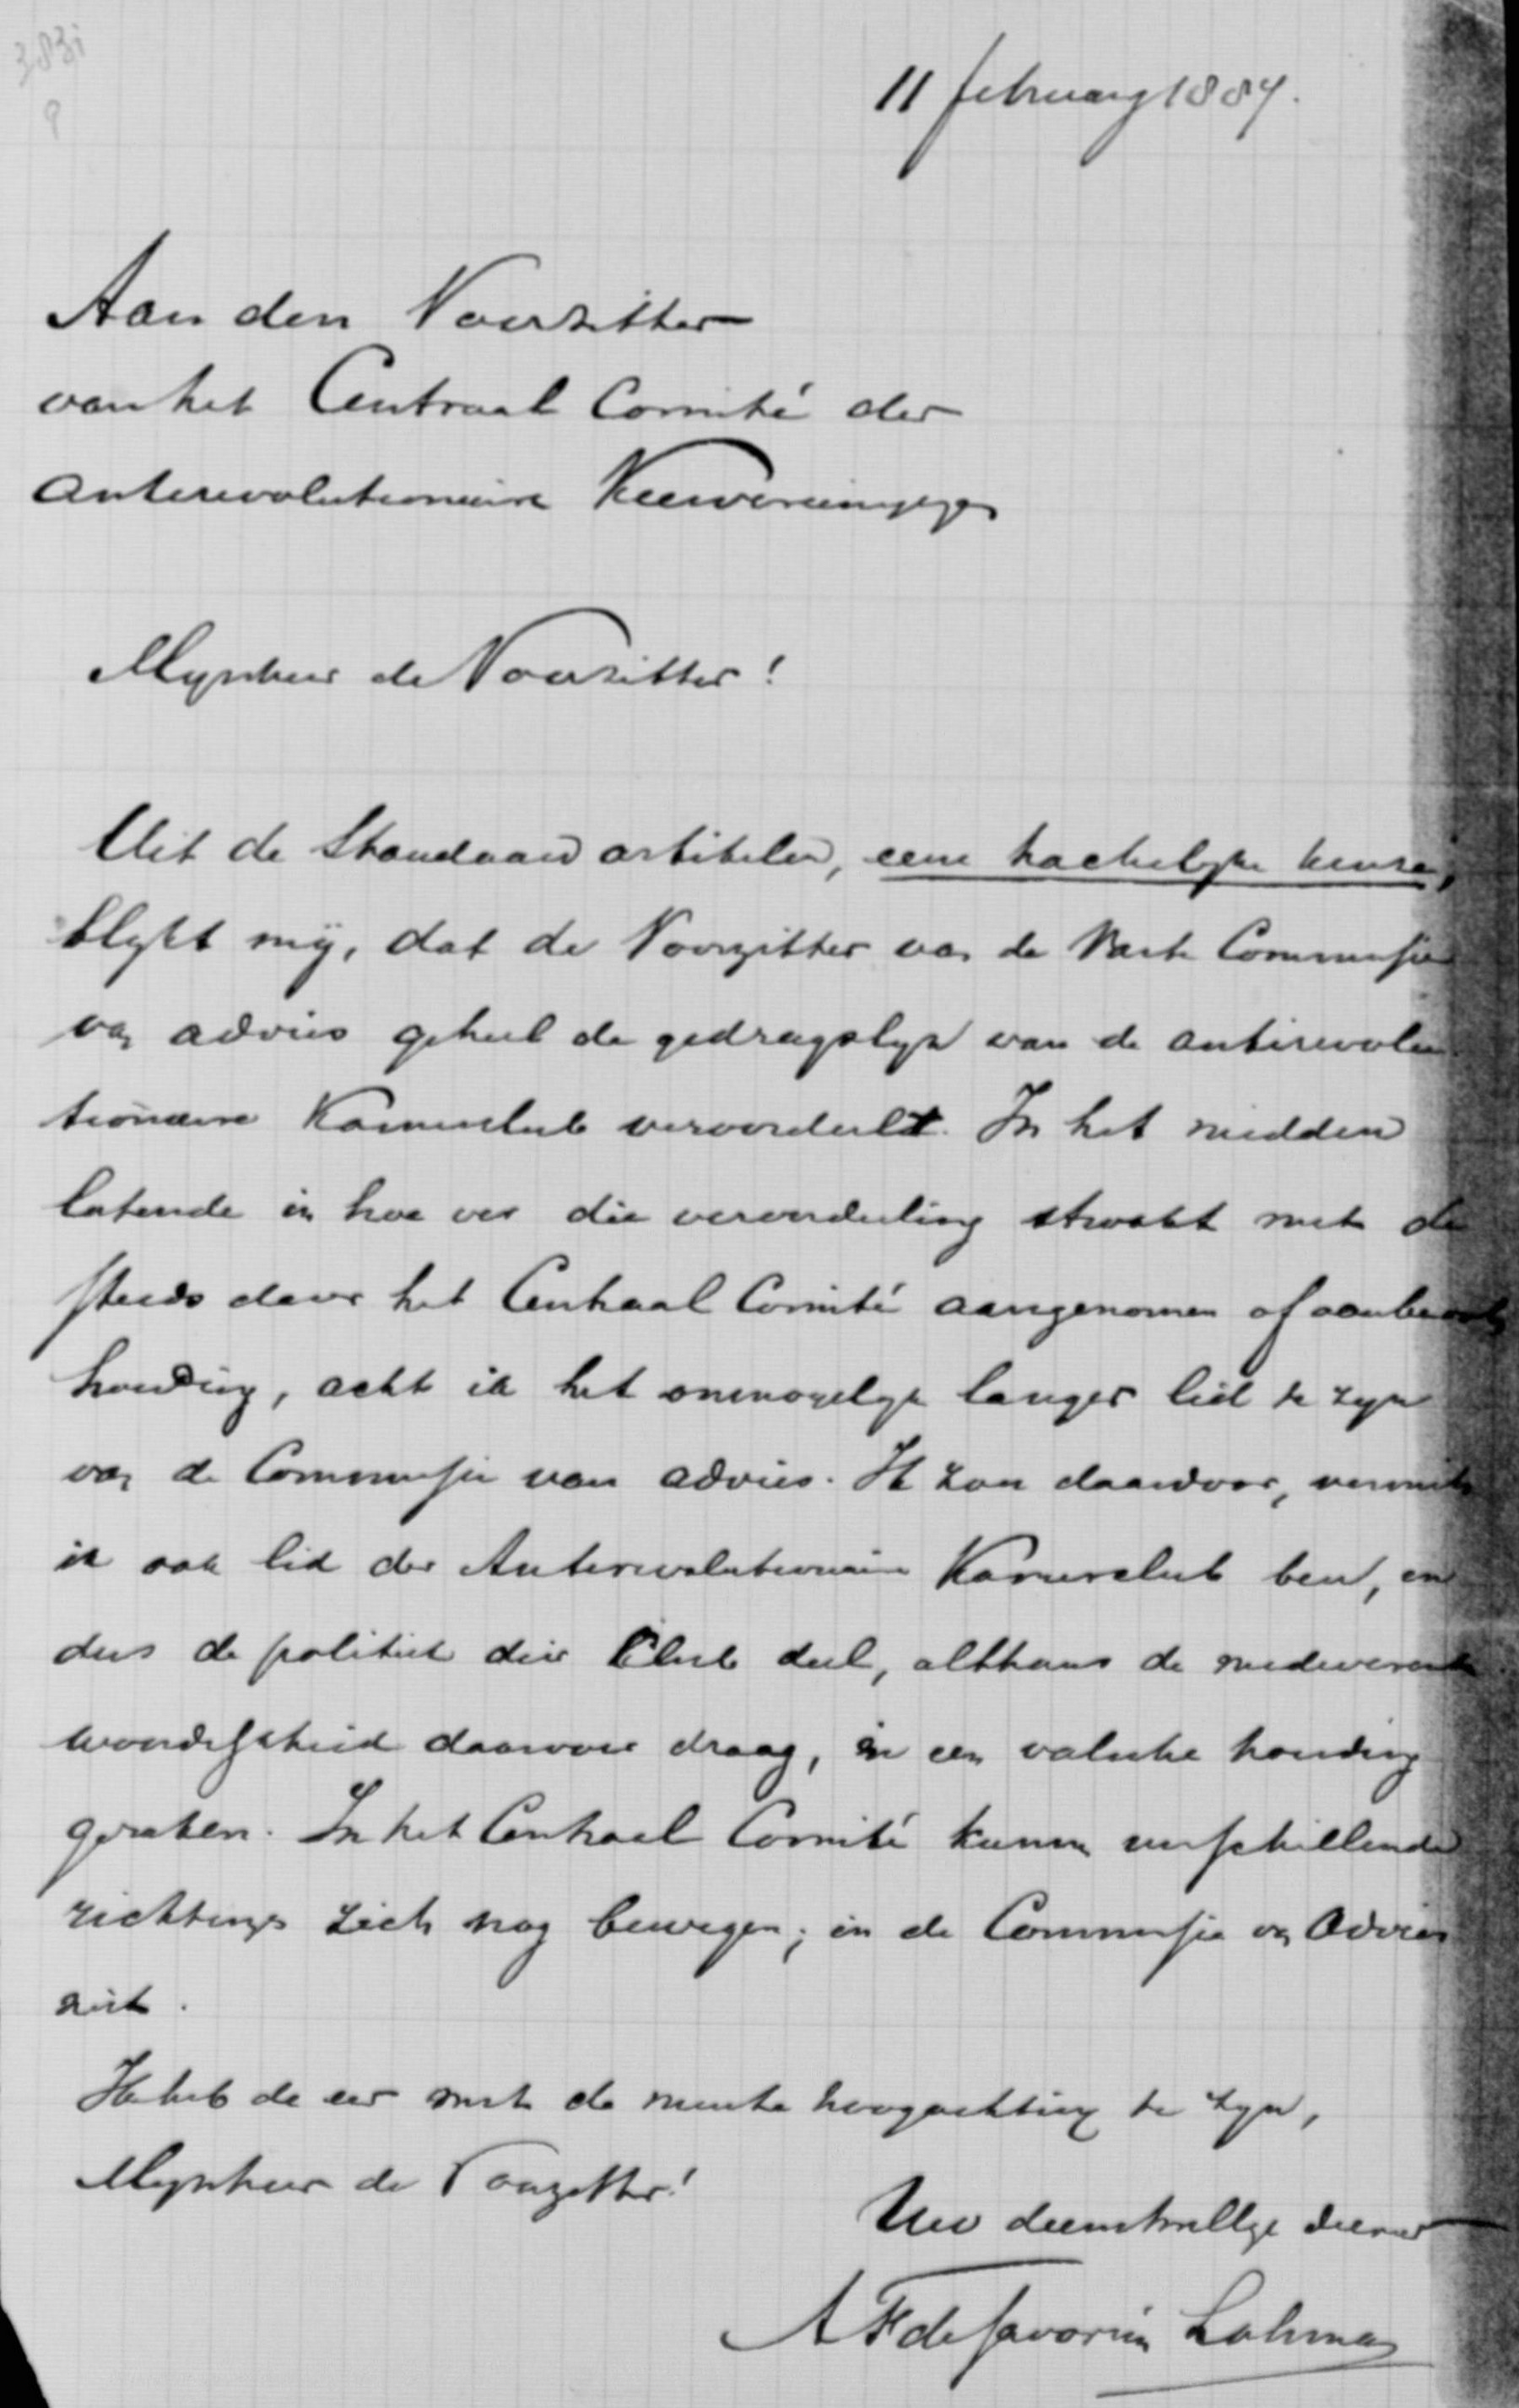 3831
9
11 february 1887.
Aan den Voorzitter
van het Centraal Comité der
Antirevolutionaire Kiesvereenigingen
Mynheer de Voorzitter!
Uit de Standaard artikelen, eene hachelyke keuze,
blykt mÿ, dat de Voorzitter van de Vaste Commissie
van advies geheel de gedragslyn van de antirevolu-
tionaire Kamerclub veroordeelt. In het midden
latende in hoe ver die veroordeeling strookt met de
steeds door het Centraal Comité aangenomen of aanbevolen
houding, acht ik het onmogelyk langer lid te zyn
van de Commissie van advies. Ik zou daardoor, vermits
ik ook lid der Antirevolutionaire Kamerclub ben, en
dus de politiek dier Club deel, althans de medeverant-
woordelykheid daarvoor draag, in een valsche houding
geraken. In het Centraal Comité kunnen verschillende
richtingen zich nog bewegen; in de Commissie van Advies
niet.
Ik heb de eer met de meeste hoogachting te zyn,
Mynheer de Voorzitter!
Uw dienstwillige dienaar
A F de Savornin Lohman